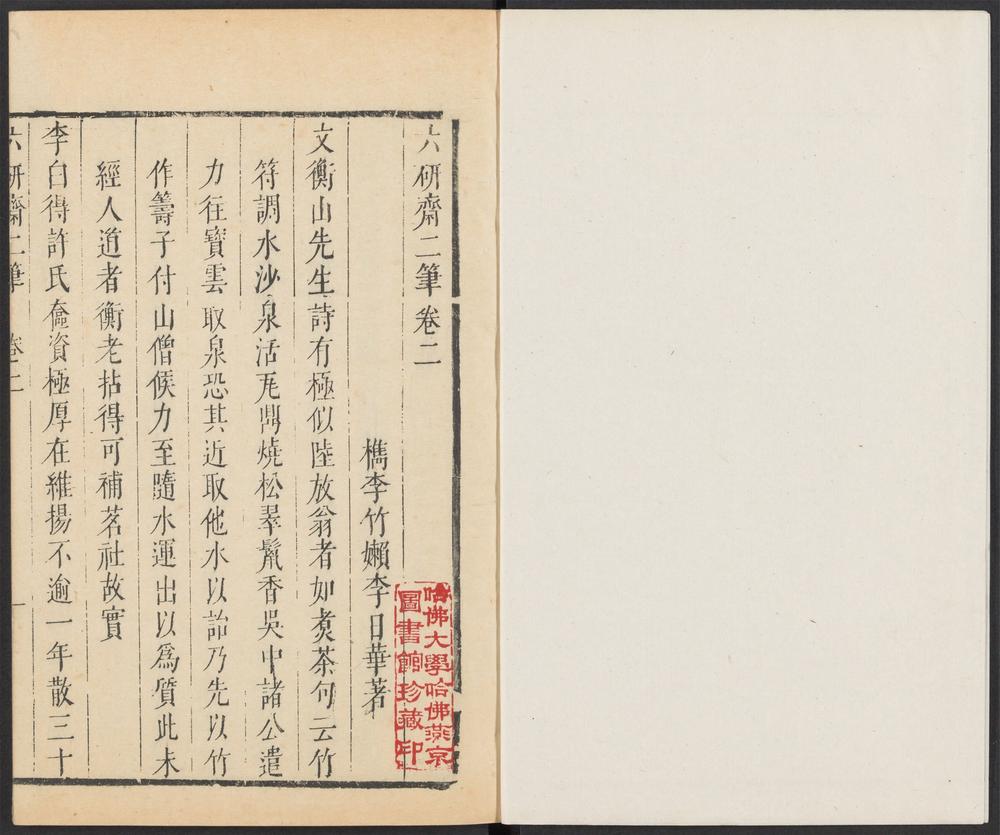 六研齋二筆卷二
檇李竹嬾李日華著
文衡山先生詩有極似陸放翁者如煑茶句云竹
符調水沙泉活瓦鼎燒松翠鬣香吳中諸公遣
力往寶雲取泉恐其近取他水以詒乃先以竹
作籌子付山僧候力至隨水運出以爲質此未
經人道者衡老拈得可補茗社故實
李白得許氏奩資極厚在維揚不逾一年散三十
六研齋二筆 卷二 一
哈佛大學哈佛燕京
圖書館珍藏印